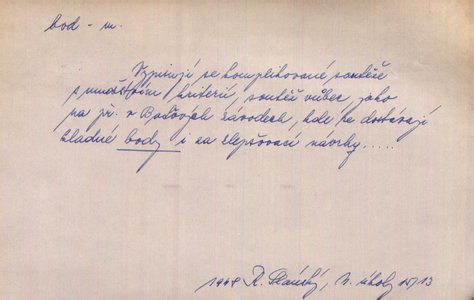 bod - m.
Vypisují se komplikované soutěže
s množstvím kriterií, soutěž vůbec jako
na př. v Baťových závodech, kde se dostávají
kladné body i za zlepšovací návrhy.....
1948 R. N. úkoly 13